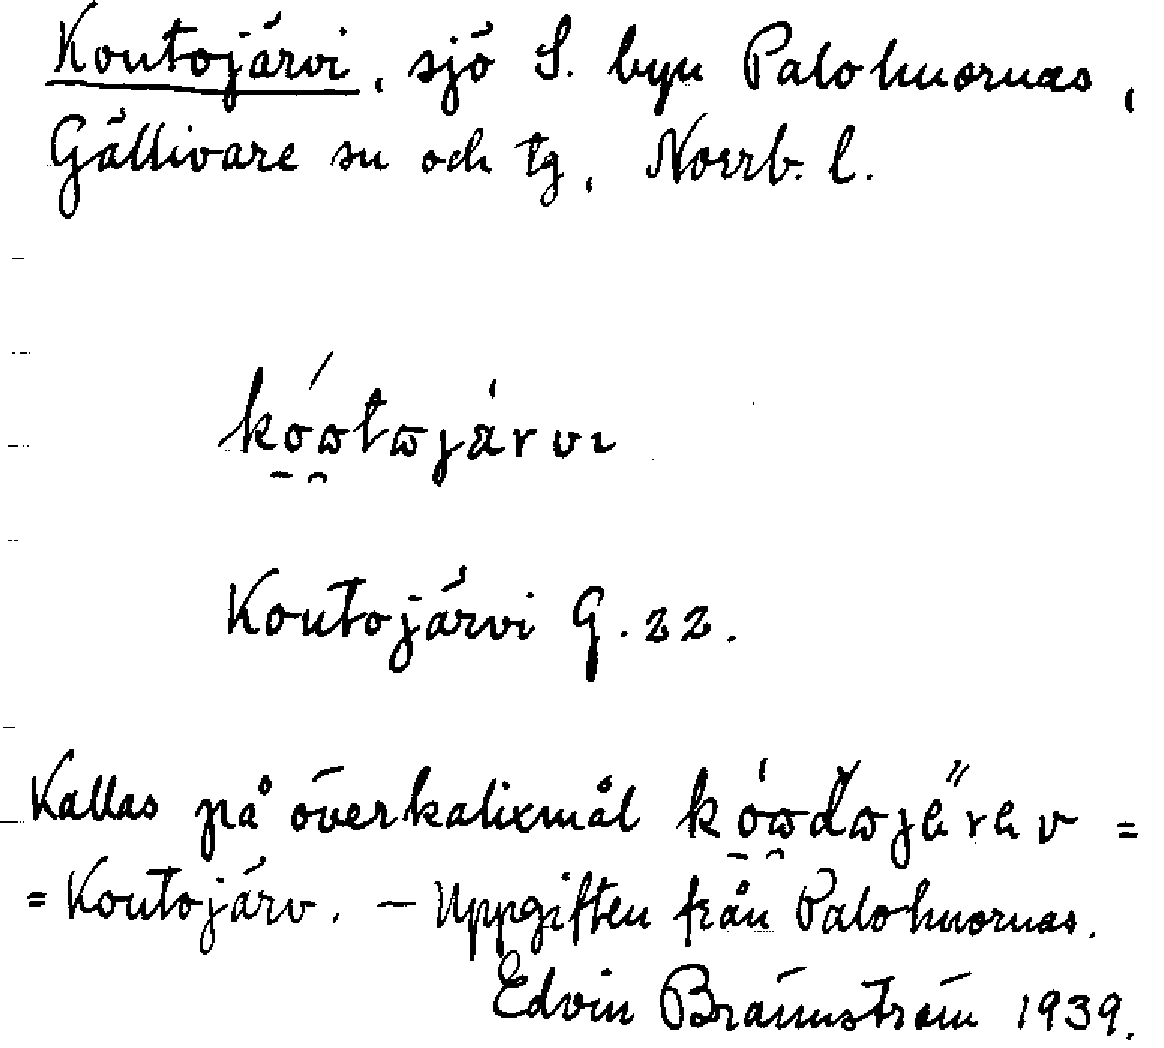 Koutojärvi, sjö S. byn Palohuornas,
Gällivare sn och tg, Norrb. l.
Koutojärvi G. 22.
Kallas på överkalixmål =
= Koutojärv. — Uppgiften från Palohuornas.
Edvin Brännström 1939.